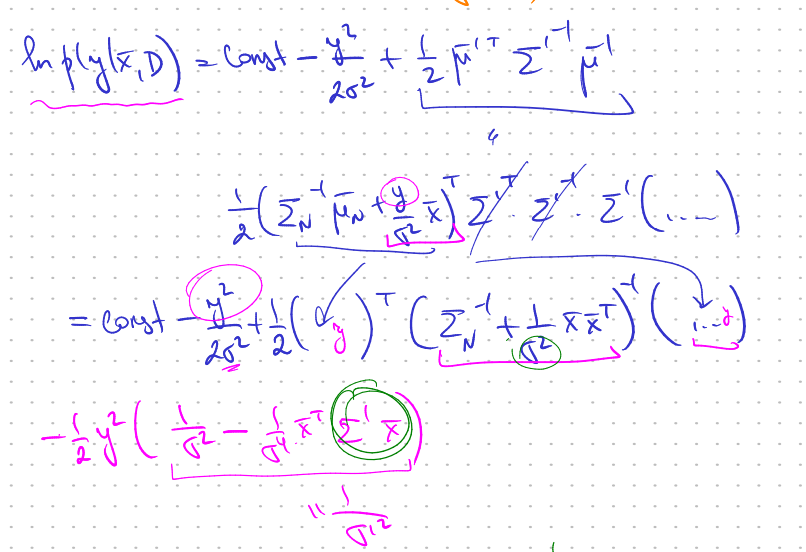 ln p(y|x̄, D) = const − y²/2σ² + 1/2 μ̄'ᵀ Σ'⁻¹ μ̄'
1/2 (Σ_N⁻¹ μ̄_N + y/σ² x̄)ᵀ Σ'ᵀ · Σ'⁻¹ · Σ' (....)
= const − y²/2σ² + 1/2 ( y )ᵀ (Σ_N⁻¹ + 1/σ² x̄ x̄ᵀ)⁻¹ (... y)
− 1/2 y² ( 1/σ² − 1/σ⁴ x̄ᵀ Σ' x̄ )
" 1/σ'²